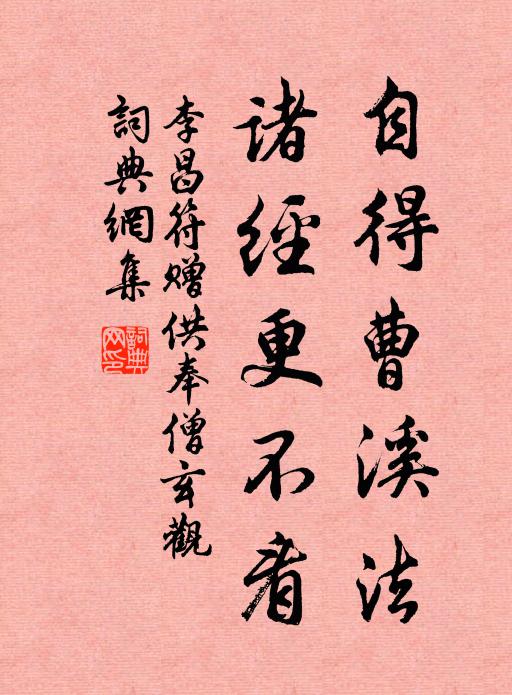 自得曹溪法
諸經更不看
李昌符贈供奉僧玄觀
詞典網集
詞典網印